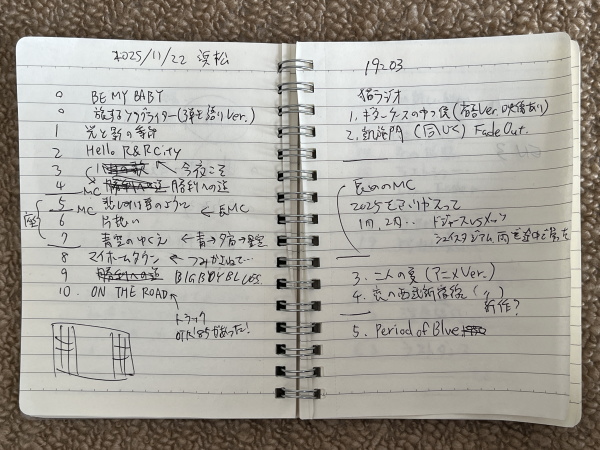 2025/11/22 浜松
0 BE MY BABY
0 旅するソングライター(弾き語りVer.)
1 光と影の季節
2 Hello R&R City
3 ← 今夜こそ
4 勝利への道
MC
5 悲しみは雪のように ← 長MC
MC
座
6 片想い
7 青空のゆくえ ← 青→夕日→星空
8 マイホームタウン ← つみかさねて…
9 勝利への道 BIG BOY BLUES
10. ON THE ROAD
トラック
1903
猫ラジオ
1. ギターケースの中の僕 (Ver. 映像あり)
2. 凱旋門 (同じく) Fade Out.
長めのMC
2025をふりかえって
1月, 2月‥ ドジャースvsメッツ
シェイスタジアム
3. 二人の夏 (アニメVer.)
4. 裏の西武新宿線 (〃)
新作?
5. Period of Blue